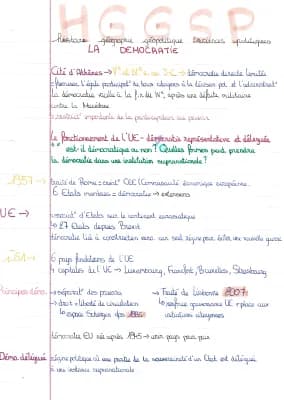 HGGSP
histoire géographie géopolitique sciences politiques
LA DEMOCRATIE
Cité d'Athènes → Vᵉ et IVᵉ s. av. J-C → démocratie directe limitée
l'égale participat° de tous citoyens à la décision pol. et l'
démocratie à la fin du IVᵉ, après une défaite militaire
contre la Macédoine
importante de la participation au pouvoir
Le fonctionnement de l'UE - démocratie représentative et déléguée
est-il démocratique ou non ? Quelles formes peut prendre
la démocratie dans une institution supranationale ?
1957 → traité de Rome = créat° CEE (Communauté économique européenne)
6 Etats membres = démocratie → extensions
UE → associat° d'Etats sur le continent européen
↳ 27 Etats depuis Brexit
démocratie liée à construction euro. car seul régime pour éviter une nouvelle guerre
6 pays fondateurs de l'UE
4 capitales de l'UE → Luxembourg, Francfort, Bruxelles, Strasbourg
Principes démo. → séparat° des pouvoirs → Traité de Lisbonne 2007
→ droit + liberté de circulation ↳ renforce gouvernance UE + place aux
↳ espace Schengen dps 1985 initiatives citoyennes
démocratie EU née après 1945 → unir pays pour paix
Démo. déléguée régime politique où une partie de la souveraineté d'un Etat est délégué
à une instance supranationale